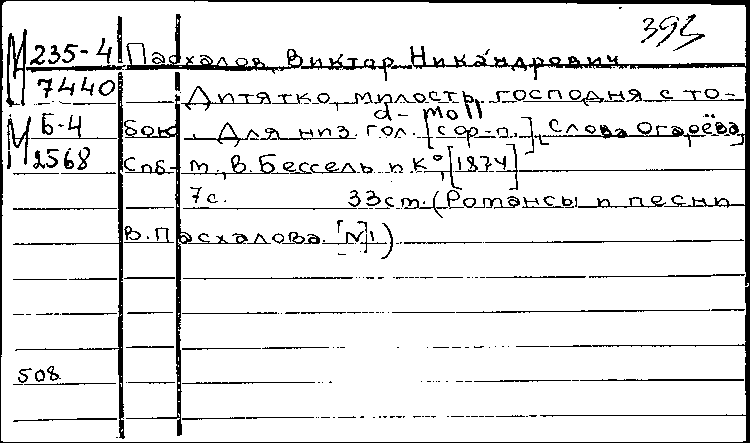 393
М 235-4 Пасхалов, Виктор Никандрович
7440 Дитятко, милость господня с то-
d-moll
М Б-4 бою. Для низ. гол. [с ф-п.] [Слова Огарёва]
2568 Спб-т., В. Бессель и К°, [1874]
7с. 33см. (Романсы и песни
В. Пасхалова. [№1)
508